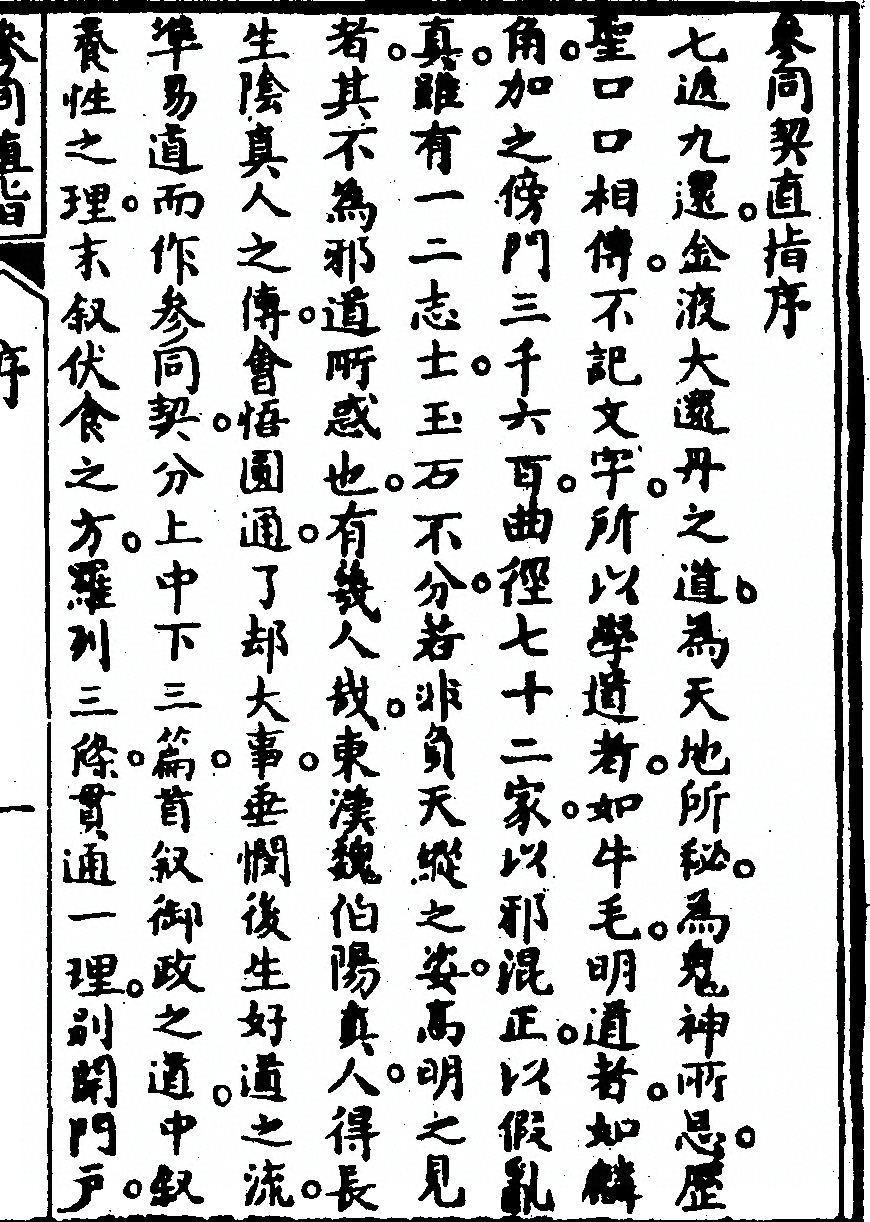 參同契直指序
七返九還。金液大還丹之道。為天地所秘。為鬼神所忌。歷
聖口口相傳。不記文字。所以學道者。如牛毛。明道者。如麟
角。加之傍門三千六百。曲徑七十二家。以邪混正。以假亂
真。雖有一二志士。玉石不分。若非負天縱之姿。高明之見
者。其不為邪道所惑也。有幾人哉。東漢魏伯陽真人。得長
生陰真人之傳。會悟圓通。了却大事。垂憫後生好道之流。
準易道而作參同契。分上中下三篇。首叙御政之道。中叙
養性之理。末叙伏食之方。羅列三條。貫通一理。別開門戶。
參同直指
序
一